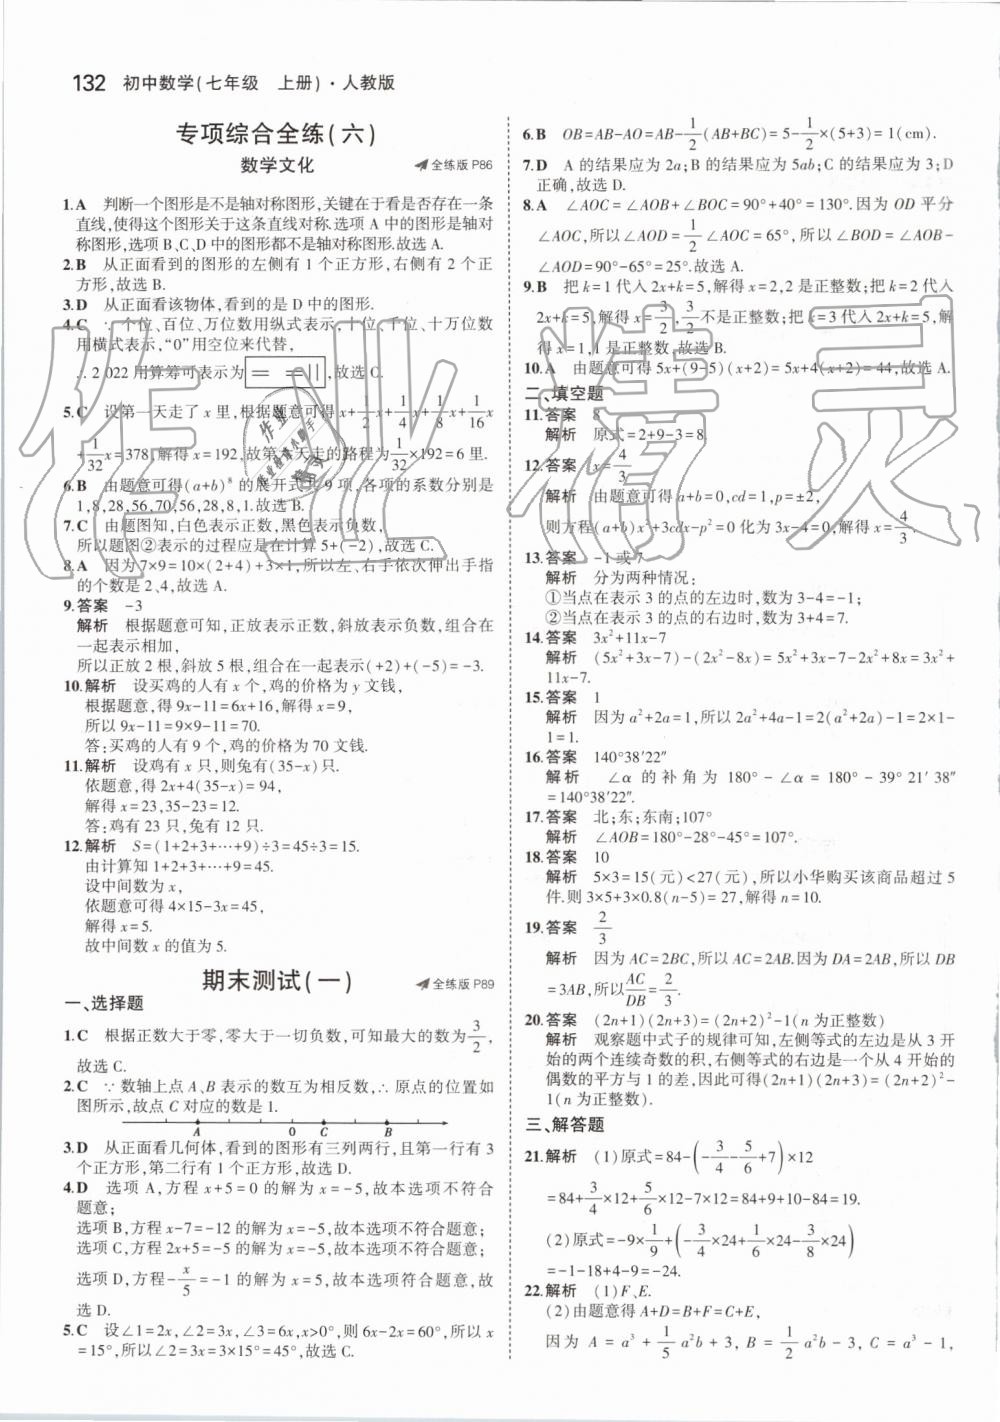 132 初中数学(七年级 上册)·人教版
专项综合全练(六)
数学文化 全练版 P86
1.A 判断一个图形是不是轴对称图形,关键在于看是否存在一条
直线,使得这个图形关于这条直线对称.选项 A 中的图形是轴对
称图形,选项 B、C、D 中的图形都不是轴对称图形.故选 A.
2.B 从正面看到的图形的左侧有 1 个正方形,右侧有 2 个正
方形,故选 B.
3.D 从正面看该物体,看到的是 D 中的图形.
4.C ∵个位、百位、万位数用纵式表示,十位、千位、十万位数
用横式表示,“0”用空位来代替,
∴2 022 用算筹可表示为 ,故选 C.
5.C 设第一天走了 x 里,根据题意可得 x+1/2x+1/4x+1/8x+1/16x
+1/32x=378,解得 x=192,故第六天走的路程为1/32×192=6 里.
6.B 由题意可得(a+b)⁸ 的展开式共 9 项,各项的系数分别是
1,8,28,56,70,56,28,8,1.故选 B.
7.C 由题图知,白色表示正数,黑色表示负数,
所以题图②表示的过程应是在计算 5+(-2),故选 C.
8.A 因为 7×9=10×(2+4)+3×1,所以左、右手依次伸出手指
的个数是 2、4,故选 A.
9.答案 -3
解析 根据题意可知,正放表示正数,斜放表示负数,组合在
一起表示相加,
所以正放 2 根,斜放 5 根,组合在一起表示(+2)+(-5)=-3.
10.解析 设买鸡的人有 x 个,鸡的价格为 y 文钱,
根据题意,得 9x-11=6x+16,解得 x=9,
所以 9x-11=9×9-11=70.
答:买鸡的人有 9 个,鸡的价格为 70 文钱.
11.解析 设鸡有 x 只,则兔有(35-x)只.
依题意,得 2x+4(35-x)=94,
解得 x=23,35-23=12.
答:鸡有 23 只,兔有 12 只.
12.解析 S=(1+2+3+⋯+9)÷3=45÷3=15.
由计算知 1+2+3+⋯+9=45.
设中间数为 x,
依题意可得 4×15-3x=45,
解得 x=5.
故中间数 x 的值为 5.
期末测试(一) 全练版 P89
一、选择题
1.C 根据正数大于零,零大于一切负数,可知最大的数为3/2,
故选 C.
2.C ∵数轴上点 A、B 表示的数互为相反数,∴原点的位置如
图所示,故点 C 对应的数是 1.
A 0 C B
3.D 从正面看几何体,看到的图形有三列两行,且第一行有 3
个正方形,第二行有 1 个正方形,故选 D.
4.D 选项 A,方程 x+5=0 的解为 x=-5,故本选项不符合
题意;
选项 B,方程 x-7=-12 的解为 x=-5,故本选项不符合题意;
选项 C,方程 2x+5=-5 的解为 x=-5,故本选项不符合题意;
选项 D,方程-x/5=-1 的解为 x=5,故本选项符合题意,故
选 D.
5.C 设∠1=2x,∠2=3x,∠3=6x,x>0°,则 6x-2x=60°,所以 x
=15°,所以∠2=3×15°=45°,故选 C.
6.B OB=AB-AO=AB-1/2(AB+BC)=5-1/2×(5+3)=1(cm).
7.D A 的结果应为 2a;B 的结果应为 5ab;C 的结果应为 3;D
正确,故选 D.
8.A ∠AOC=∠AOB+∠BOC=90°+40°=130°.因为 OD 平分
∠AOC,所以∠AOD=1/2∠AOC=65°,所以∠BOD=∠AOB-
∠AOD=90°-65°=25°.故选 A.
9.B 把 k=1 代入 2x+k=5,解得 x=2,2 是正整数;把 k=2 代入
2x+k=5,解得 x=3/2,3/2不是正整数;把 k=3 代入 2x+k=5,解
得 x=1,1 是正整数,故选 B.
10.A 由题意可得 5x+(9-5)(x+2)=5x+4(x+2)=44,故选 A.
二、填空题
11.答案 8
解析 原式=2+9-3=8.
12.答案 x=4/3
解析 由题意可得 a+b=0,cd=1,p=±2,
则方程(a+b)x²+3cdx-p²=0 化为 3x-4=0,解得 x=4/3.
13.答案 -1 或 7
解析 分为两种情况:
①当点在表示 3 的点的左边时,数为 3-4=-1;
②当点在表示 3 的点的右边时,数为 3+4=7.
14.答案 3x²+11x-7
解析 (5x²+3x-7)-(2x²-8x)=5x²+3x-7-2x²+8x=3x²+
11x-7.
15.答案 1
解析 因为 a²+2a=1,所以 2a²+4a-1=2(a²+2a)-1=2×1-
1=1.
16.答案 140°38′22″
解析 ∠α 的补角为 180°-∠α=180°-39°21′38″
=140°38′22″.
17.答案 北;东;东南;107°
解析 ∠AOB=180°-28°-45°=107°.
18.答案 10
解析 5×3=15(元)<27(元),所以小华购买该商品超过 5
件.则 3×5+3×0.8(n-5)=27,解得 n=10.
19.答案 2/3
解析 因为 AC=2BC,所以 AC=2AB.因为 DA=2AB,所以 DB
=3AB,所以AC/DB=2/3.
20.答案 (2n+1)(2n+3)=(2n+2)²-1(n 为正整数)
解析 观察题中式子的规律可知,左侧等式的左边是从 3 开
始的两个连续奇数的积,右侧等式的右边是一个从 4 开始的
偶数的平方与 1 的差,因此可得(2n+1)(2n+3)=(2n+2)²-
1(n 为正整数).
三、解答题
21.解析 (1)原式=84-(-3/4-5/6+7)×12
=84+3/4×12+5/6×12-7×12=84+9+10-84=19.
(2)原式=-9×1/9+(-3/4×24+1/6×24-3/8×24)
=-1-18+4-9=-24.
22.解析 (1)F、E.
(2)由题意得 A+D=B+F=C+E,
因为 A=a³+1/5a²b+3, B=1/2a²b-3, C=a³-1,
作业精灵